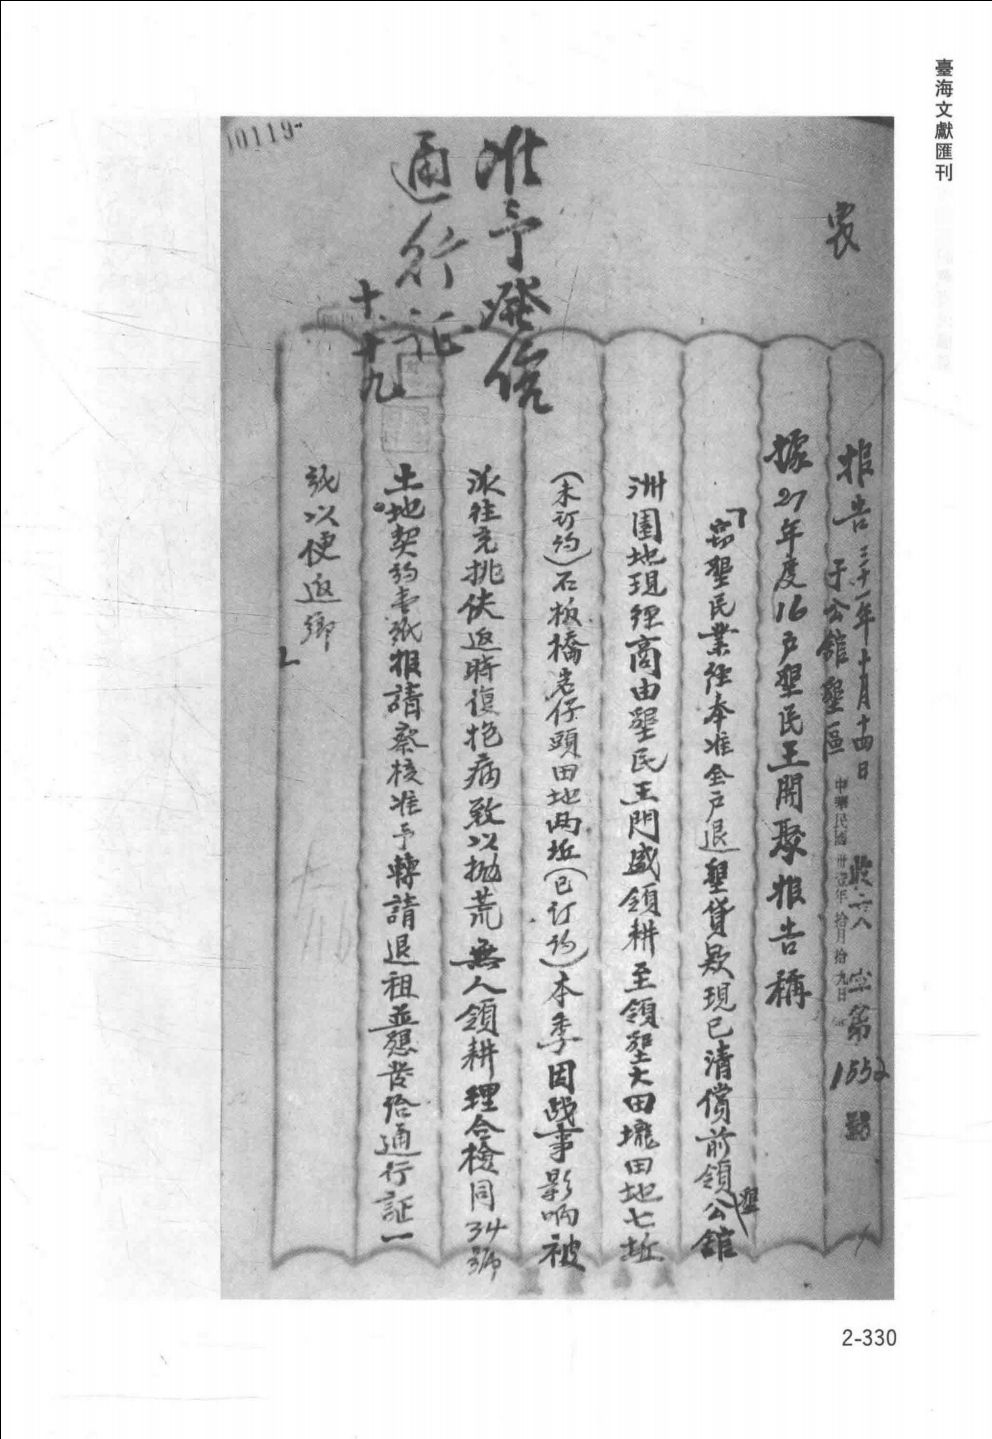 臺海文獻匯刊
農
報告 三十一年十月十四日
于公館墾區
收 六八 字第1552號
中華民國卅壹年拾月拾九日
據27年度16戶墾民王開聚報告稱
「竊墾民業經奉准全戶退墾貸款現已清償前領公館墾
洲園地現經商由墾民王門盛領耕至領墾大田壠田地七坵
(未訂約)石板橋岩仔頭田地兩坵(已訂約)本季因戰事影响被
派往充挑伕返時復抱病致以拋荒無人領耕理合檢同34號
土地契約書紙報請察核准予轉請退租並懇發給通行証一
紙以便返鄉」
准予發信
通行证
十、十九
10119
2-330